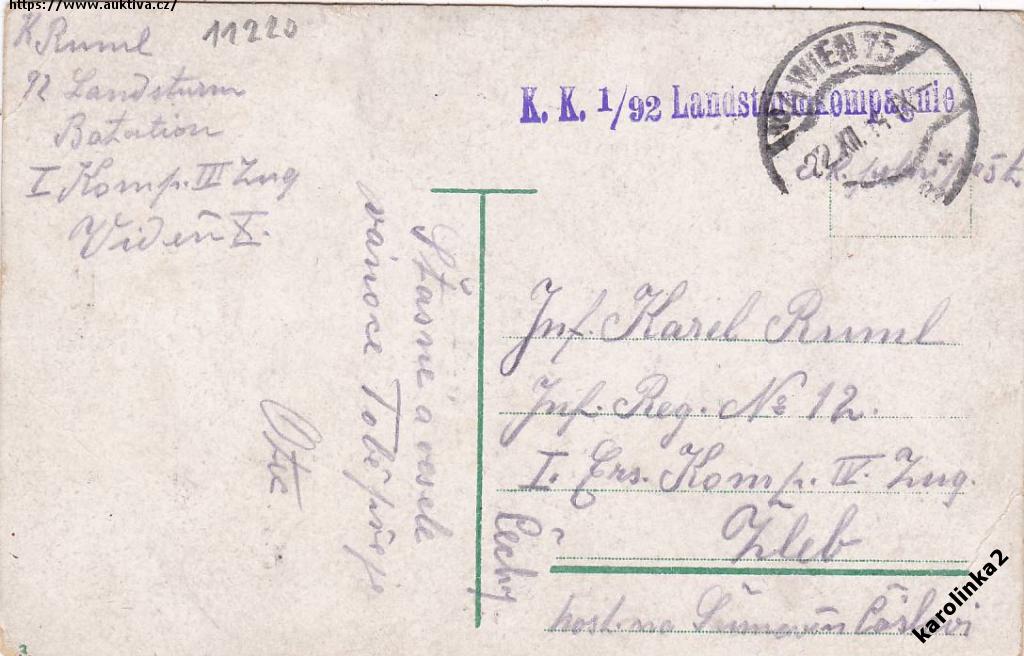 https://www.auktiva.cz/
K Ruml
11220
92 Landsturm
Batation
I Komp. III Zug
Videň X.
Štasné a veselé
vánoce Tobě přeje
Otec
K. K. 1/92 Landsturm Kompagnie
WIEN 75
22.XII.
Inf. Karel Ruml
Inf. Reg. No 12.
I. Ers. Komp. IV. Zug.
Žleb
Čechy
host. na
karolinka2